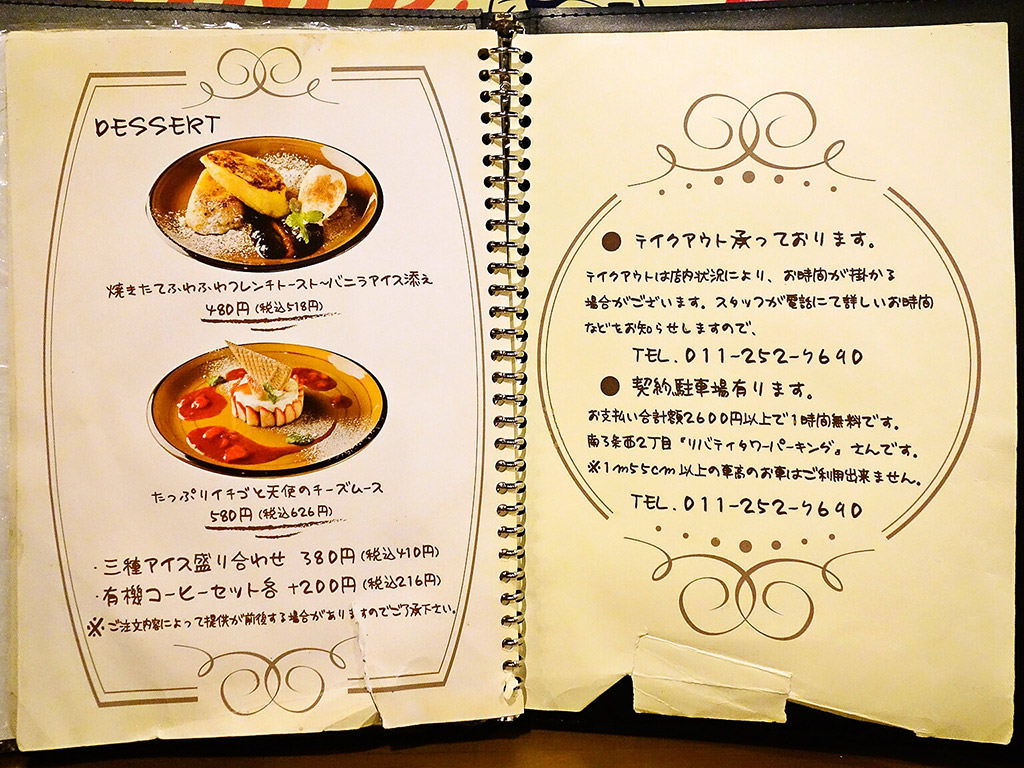 DESSERT
焼きたてふわふわフレンチトースト〜バニラアイス添え
480円(税込518円)
たっぷりイチゴと天使のチーズムース
580円(税込626円)
・三種アイス盛り合わせ 380円(税込410円)
・有機コーヒーセット各 +200円(税込216円)
※ご注文内容によって提供が前後する場合がありますのでご了承下さい。
● テイクアウト承っております。
テイクアウトは店内状況により、お時間が掛かる
場合がございます。スタッフが電話にて詳しいお時間
などをお知らせしますので、
TEL.011-252-7690
● 契約駐車場有ります。
お支払い合計額2600円以上で1時間無料です。
南3条西2丁目『リバティタワーパーキング』さんです。
※1m55cm以上の車高のお車はご利用出来ません。
TEL.011-252-7690